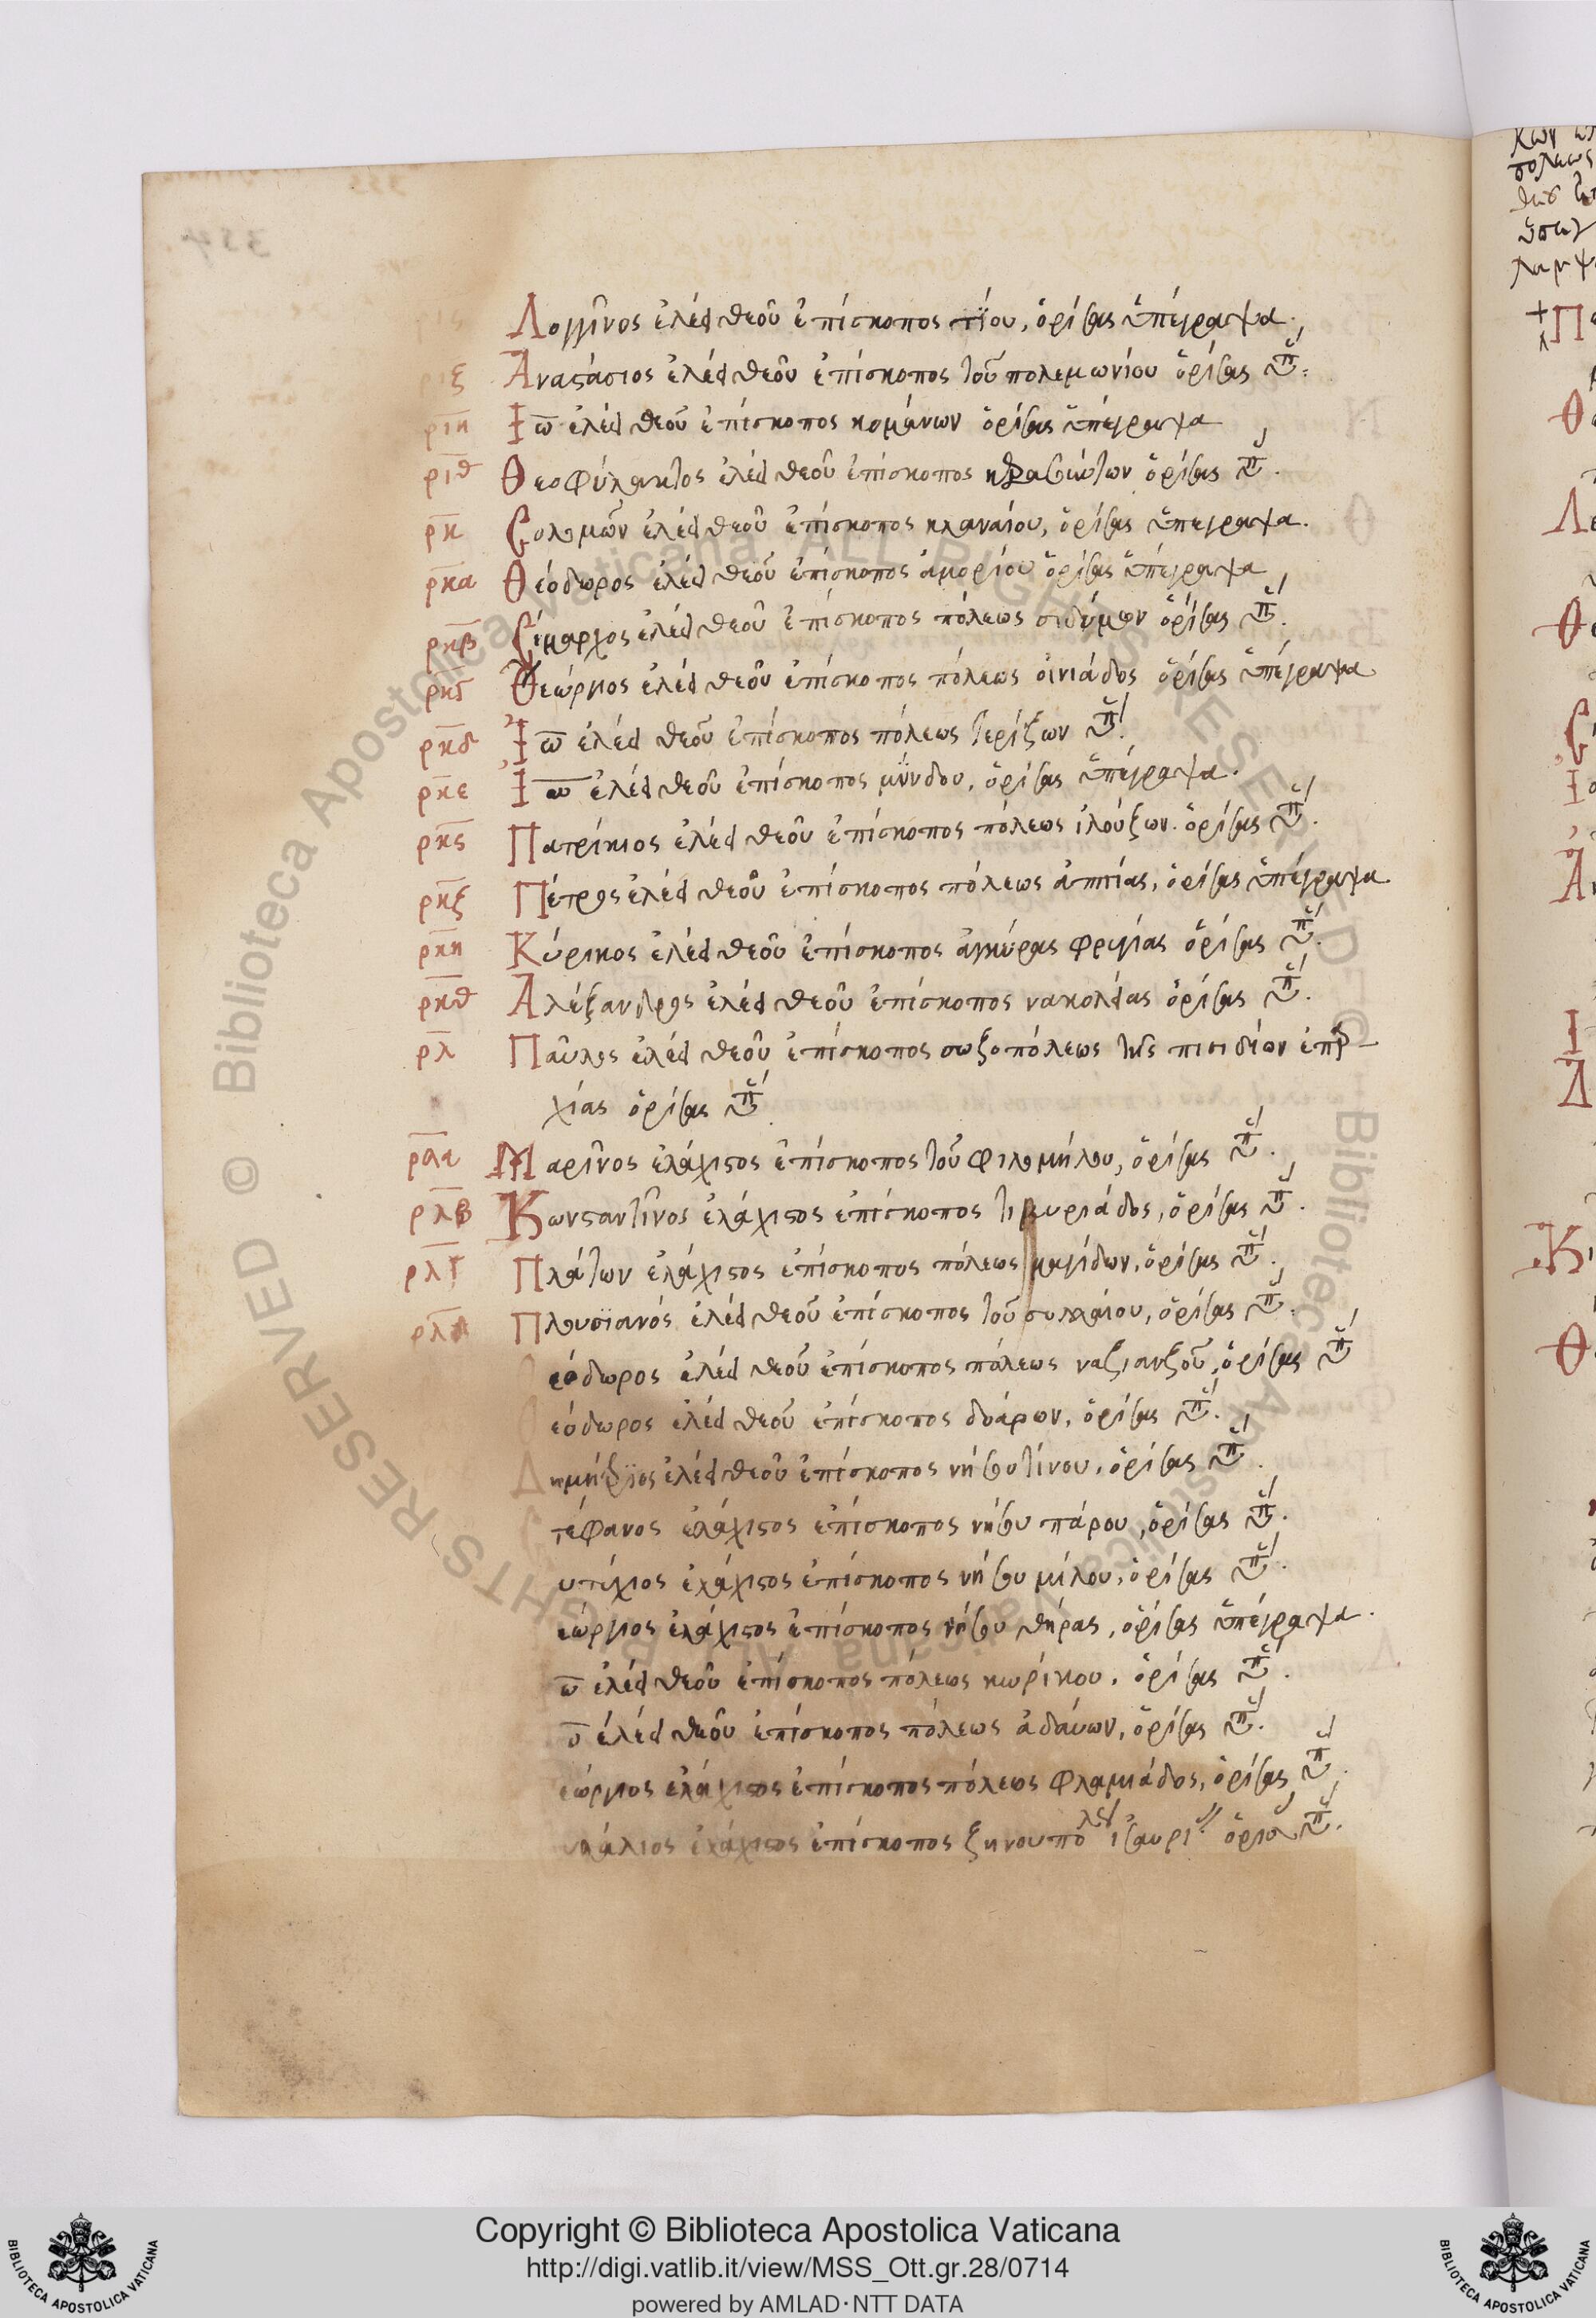 Λογγῖνος ἐλέει θεοῦ ἐπίσκοπος τίου, ὁρίσας ὑπέγραψα.
ριζ Ἀναστάσιος ἐλέει θεοῦ ἐπίσκοπος τοῦ πολεμωνίου ὁρίσας ὑπ:
ριη Ιω ἐλέει θεοῦ ἐπίσκοπος κομάνων ὁρίσας ὑπέγραψα
ριθ Θεοφύλακτος ἐλέει θεοῦ ἐπίσκοπος ὁρίσας ὑπ.
ρκ Σολομῶν ἐλέει θεοῦ ἐπίσκοπος κλαναίου, ὁρίσας ὑπεγραψα.
ρκα Θεόδωρος ἐλέει θεοῦ ἐπίσκοπος ἀμορίου ὁρίσας ὑπέγραψα
ρκβ Σίμαρχος ἐλέει θεοῦ ἐπίσκοπος πόλεως σιδύμων ὁρίσας ὑπ.
ρκγ Γεώργιος ἐλέει θεοῦ ἐπίσκοπος πόλεως οἰνιάδος ὁρίσας ὑπέγραψα
ρκδ Ἰω ἐλέει θεοῦ ἐπίσκοπος πόλεως ὑπ.
ρκε Ἰω ἐλέει θεοῦ ἐπίσκοπος μύνδου, ὁρίσας ὑπέγραψα.
ρκς Πατρίκιος ἐλέει θεοῦ ἐπίσκοπος πόλεως ἰλούζων. ὁρίσας ὑπ.
ρκζ Πέτρος ἐλέει θεοῦ ἐπίσκοπος πόλεως ἀππίας, ὁρίσας ὑπέγραψα
ρκη Κύρικος ἐλέει θεοῦ ἐπίσκοπος ἀγκύρας φριγίας ὁρίσας ὑπ.
ρκθ Ἀλέξανδρος ἐλέει θεοῦ ἐπίσκοπος νακολείας ὁρίσας ὑπ.
ρλ Παῦλος ἐλέει θεοῦ ἐπίσκοπος σωζοπόλεως τῆς πισιδίων ἐπαρ-
χίας ὁρίσας ὑπ.
ρλα Μαρῖνος ἐλάχιστος ἐπίσκοπος τοῦ φιλομήλου, ὁρίσας ὑπ.
ρλβ Κωνσταντῖνος ἐλάχιστος ἐπίσκοπος τιβυριάδος, ὁρίσας ὑπ.
ρλγ Πλάτων ἐλάχιστος ἐπίσκοπος πόλεως μαγίδων, ὁρίσας ὑπ.
ρλδ Πλουσϊανός ἐλέει θεοῦ ἐπίσκοπος τοῦ συλλαίου, ὁρίσας ὑπ.
εόδωρος ἐλέει θεοῦ ἐπίσκοπος πόλεως ναζιανζοῦ, ὁρίσας ὑπ
εόδωρος ἐλέει θεοῦ ἐπίσκοπος δοάρων, ὁρίσας ὑπ.
Δημήτριος ἐλέει θεοῦ ἐπίσκοπος νήσου τίνου, ὁρίσας ὑπ.
τέφανος ἐλάχιστος ἐπίσκοπος νήσου πάρου, ὁρίσας ὑπ.
υτύχιος ἐλάχιστος ἐπίσκοπος νήσου μίλου, ὁρίσας ὑπ.
εώργιος ἐλάχιστος ἐπίσκοπος νήσου θήρας, ὁρίσας ὑπέγραψα.
ω ἐλέει θεοῦ ἐπίσκοπος πόλεως κωρίκου, ὁρίσας ὑπ.
ω ἐλέει θεοῦ ἐπίσκοπος πόλεως ἀδάνων, ὁρίσας ὑπ.
εώργιος ἐλάχιστος ἐπίσκοπος πόλεως φλαμιάδος, ὁρίσας ὑπ.
ἐλάχιστος ἐπίσκοπος ζηνουπόλε ἰσαυρί ὁρισ ὑπ.
Copyright © Biblioteca Apostolica Vaticana
http://digi.vatlib.it/view/MSS_Ott.gr.28/0714
powered by AMLAD·NTT DATA
BIBLIOTECA APOSTOLICA VATICANA
BIBLIOTECA APOSTOLICA VATICANA